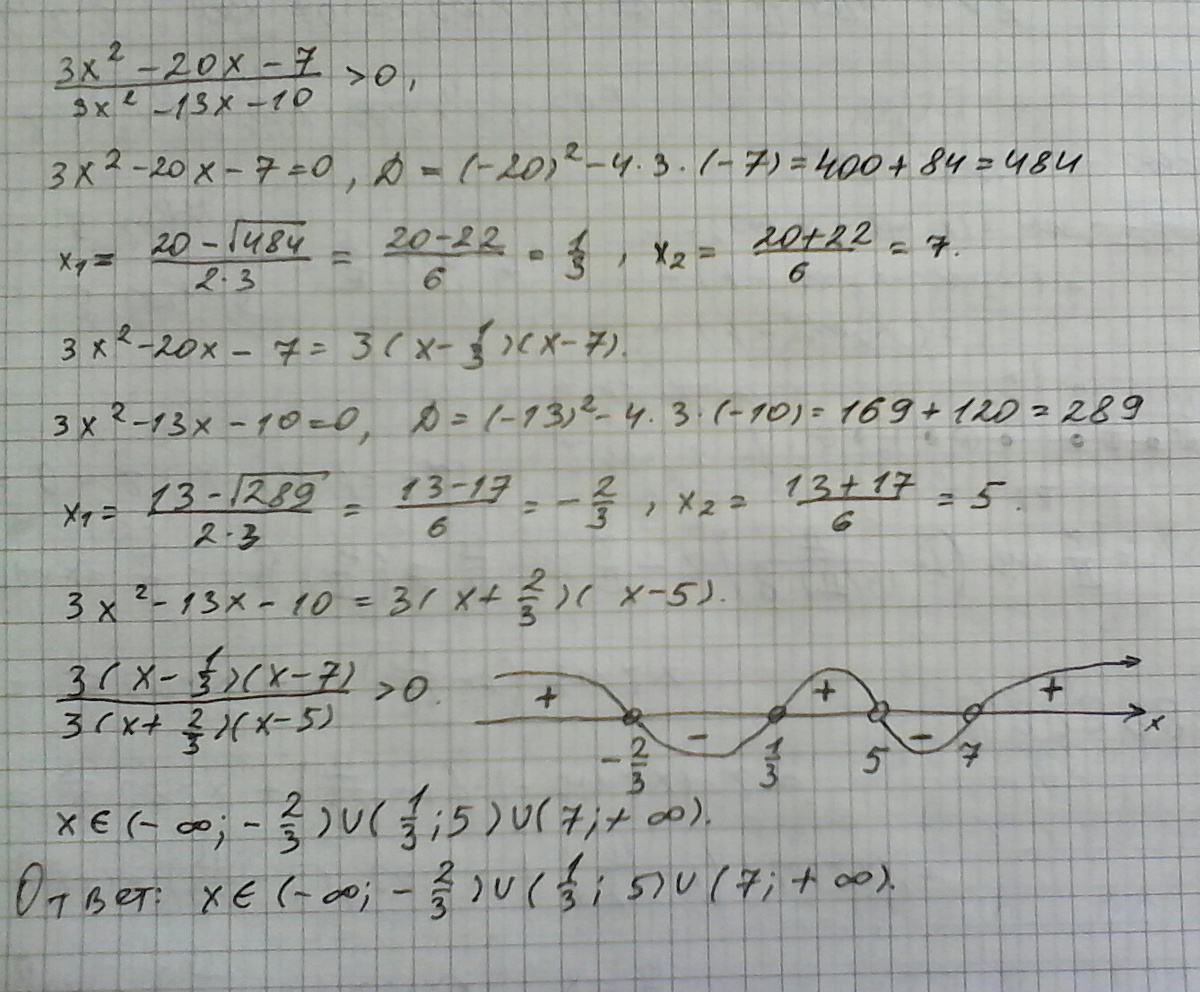 (3x² - 20x - 7)/(3x² - 13x - 10) > 0,
3x² - 20x - 7 = 0, D = (-20)² - 4·3·(-7) = 400 + 84 = 484
x₁ = (20 - √484)/(2·3) = (20 - 22)/6 = 1/3, x₂ = (20 + 22)/6 = 7.
3x² - 20x - 7 = 3(x - 1/3)(x - 7).
3x² - 13x - 10 = 0, D = (-13)² - 4·3·(-10) = 169 + 120 = 289
x₁ = (13 - √289)/(2·3) = (13 - 17)/6 = -2/3, x₂ = (13 + 17)/6 = 5.
3x² - 13x - 10 = 3(x + 2/3)(x - 5).
(3(x - 1/3)(x - 7))/(3(x + 2/3)(x - 5)) > 0.
+ - + - +
-2/3 1/3 5 7 x
x ∈ (-∞; -2/3) ∪ (1/3; 5) ∪ (7; +∞).
Ответ: x ∈ (-∞; -2/3) ∪ (1/3; 5) ∪ (7; +∞).